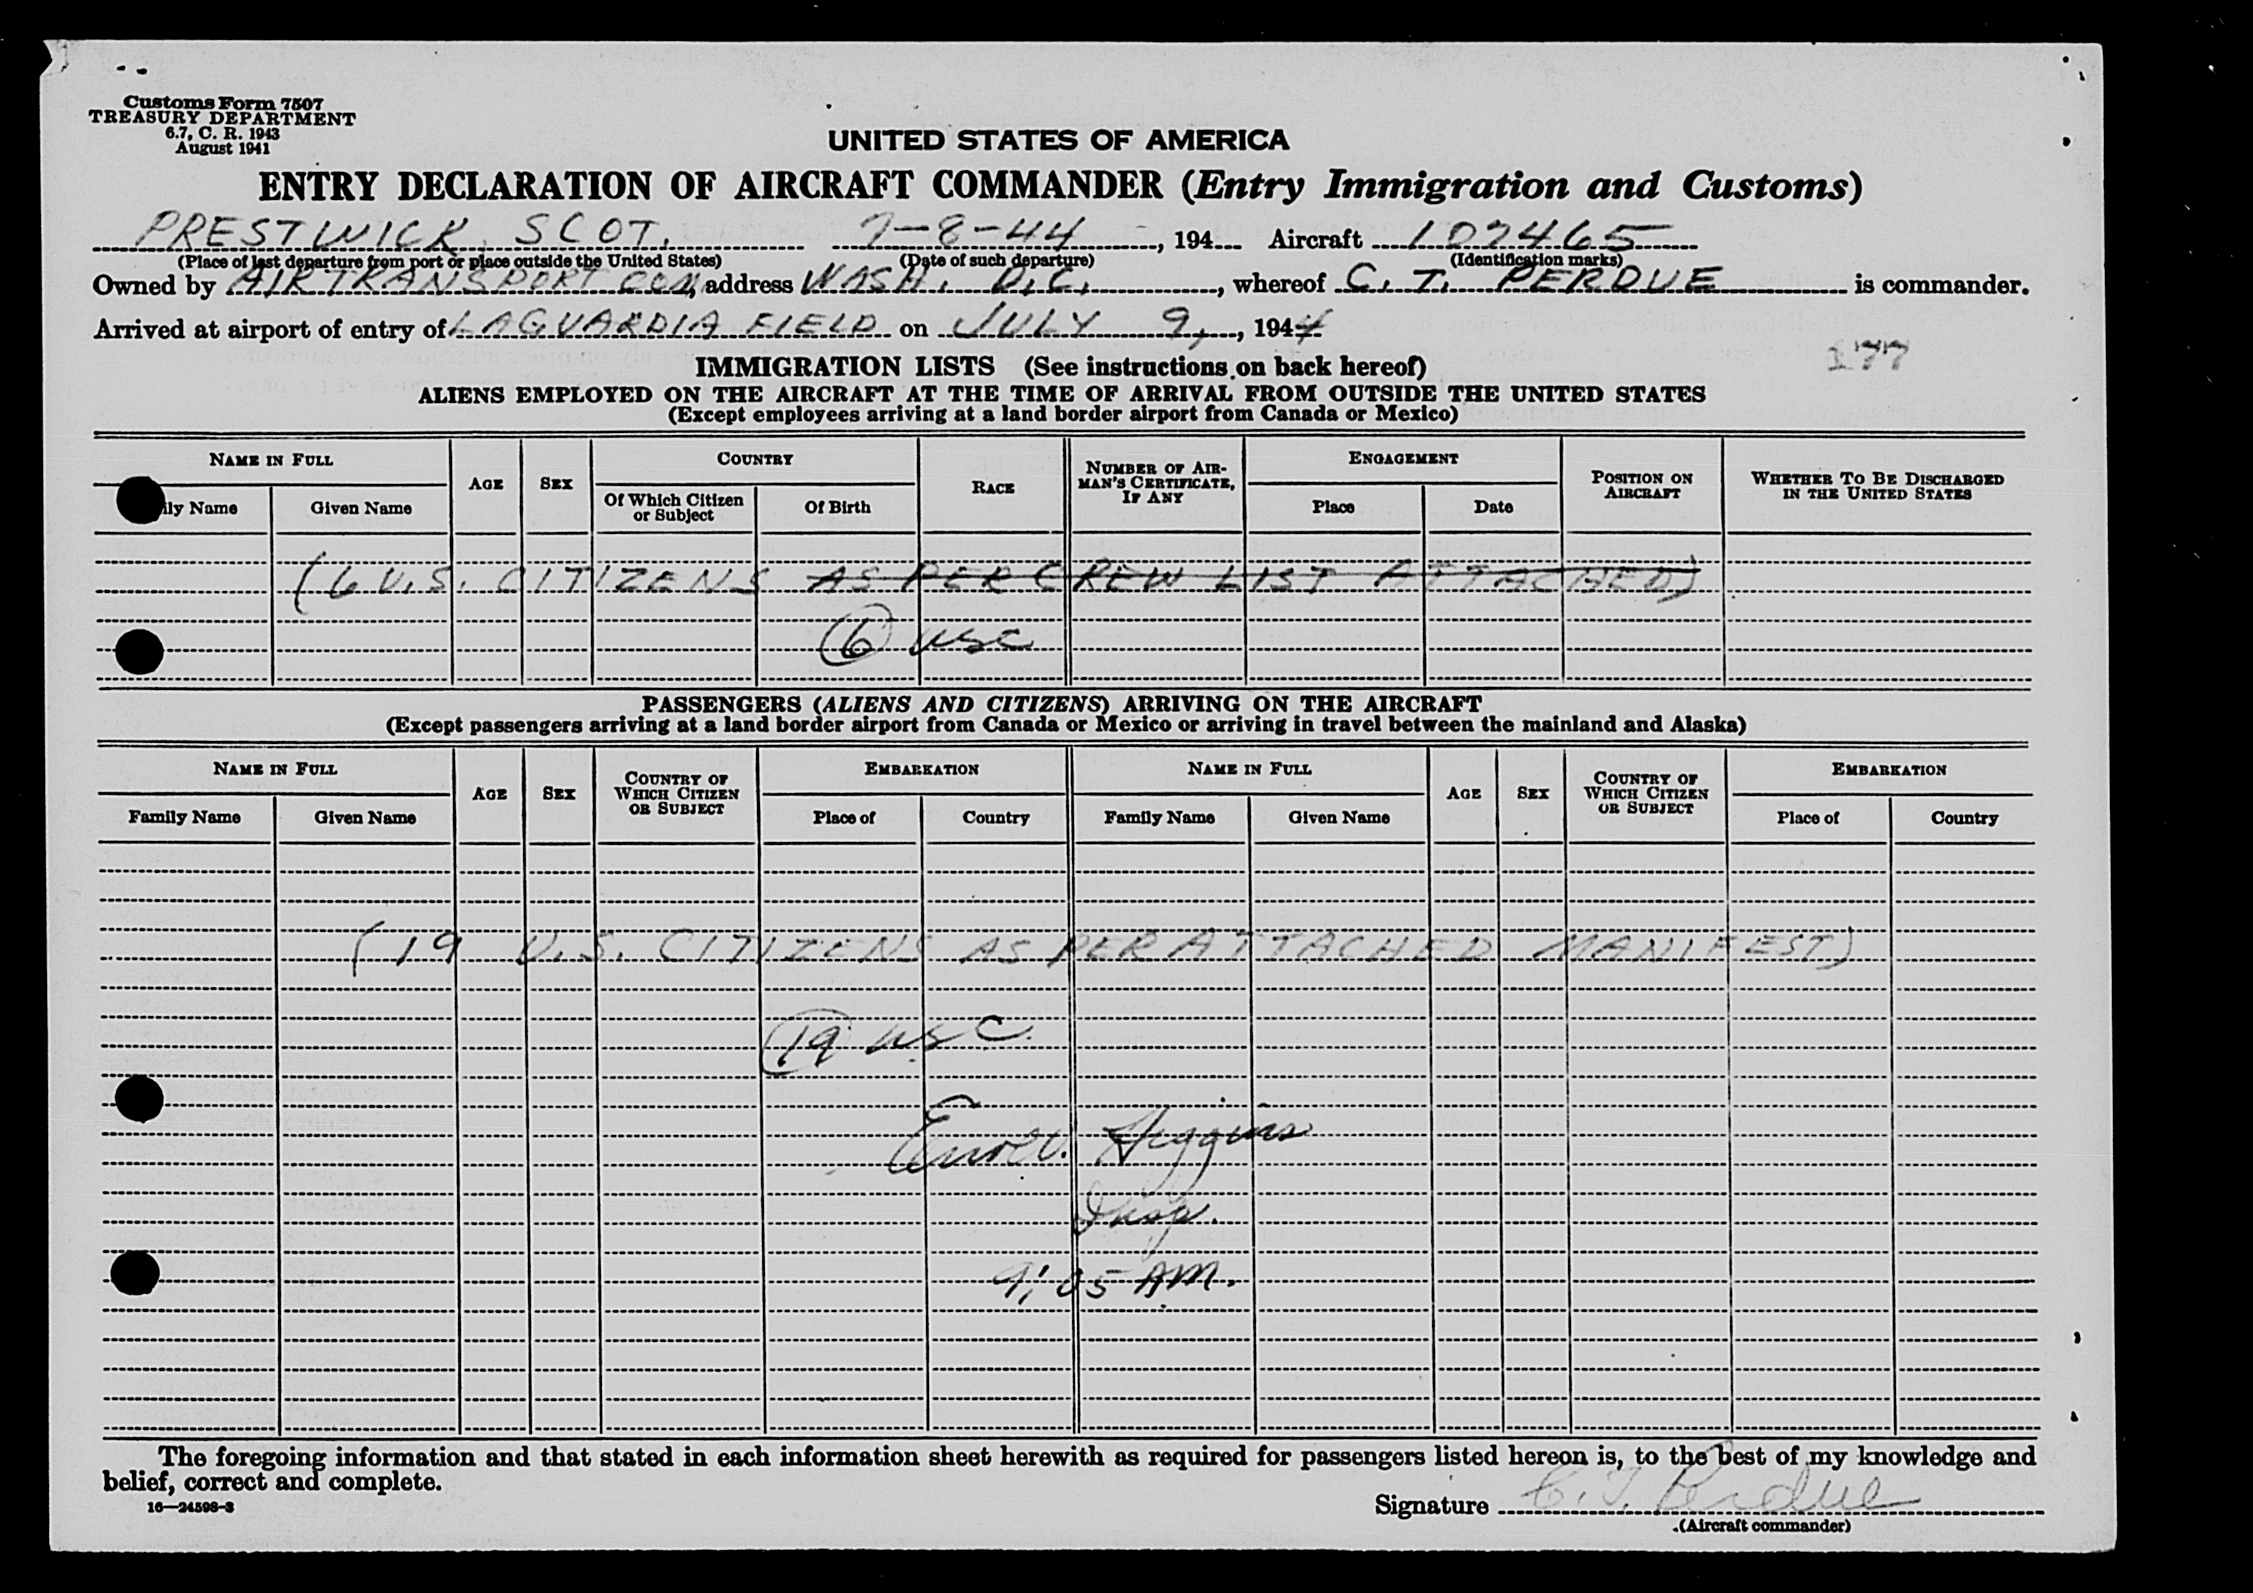 Customs Form 7507
TREASURY DEPARTMENT
6.7, C. R. 1943
August 1941
UNITED STATES OF AMERICA
ENTRY DECLARATION OF AIRCRAFT COMMANDER (Entry Immigration and Customs)
PRESTWICK, SCOT. 7-8-44, 194 Aircraft 107465
(Place of last departure from port or place outside the United States) (Date of such departure) (Identification marks)
Owned by AIR TRANSPORT COM, address WASH. D.C., whereof C. T. PERDUE is commander.
Arrived at airport of entry of LAGUARDIA FIELD on JULY 9, 1944
177
IMMIGRATION LISTS (See instructions on back hereof)
ALIENS EMPLOYED ON THE AIRCRAFT AT THE TIME OF ARRIVAL FROM OUTSIDE THE UNITED STATES
(Except employees arriving at a land border airport from Canada or Mexico)
NAME IN FULL AGE SEX COUNTRY RACE NUMBER OF AIRMAN'S CERTIFICATE, IF ANY ENGAGEMENT POSITION ON AIRCRAFT WHETHER TO BE DISCHARGED IN THE UNITED STATES
ily Name Given Name Of Which Citizen or Subject Of Birth Place Date
(6 U.S. CITIZENS AS PER CREW LIST ATTACHED)
6 USC
PASSENGERS (ALIENS AND CITIZENS) ARRIVING ON THE AIRCRAFT
(Except passengers arriving at a land border airport from Canada or Mexico or arriving in travel between the mainland and Alaska)
NAME IN FULL AGE SEX COUNTRY OF WHICH CITIZEN OR SUBJECT EMBARKATION NAME IN FULL AGE SEX COUNTRY OF WHICH CITIZEN OR SUBJECT EMBARKATION
Family Name Given Name Place of Country Family Name Given Name Place of Country
(19 U.S. CITIZENS AS PER ATTACHED MANIFEST)
19 USC
Higgins
Insp.
9:05 AM.
The foregoing information and that stated in each information sheet herewith as required for passengers listed hereon is, to the best of my knowledge and
belief, correct and complete.
16—24598-3
Signature C. T. Perdue
(Aircraft commander)